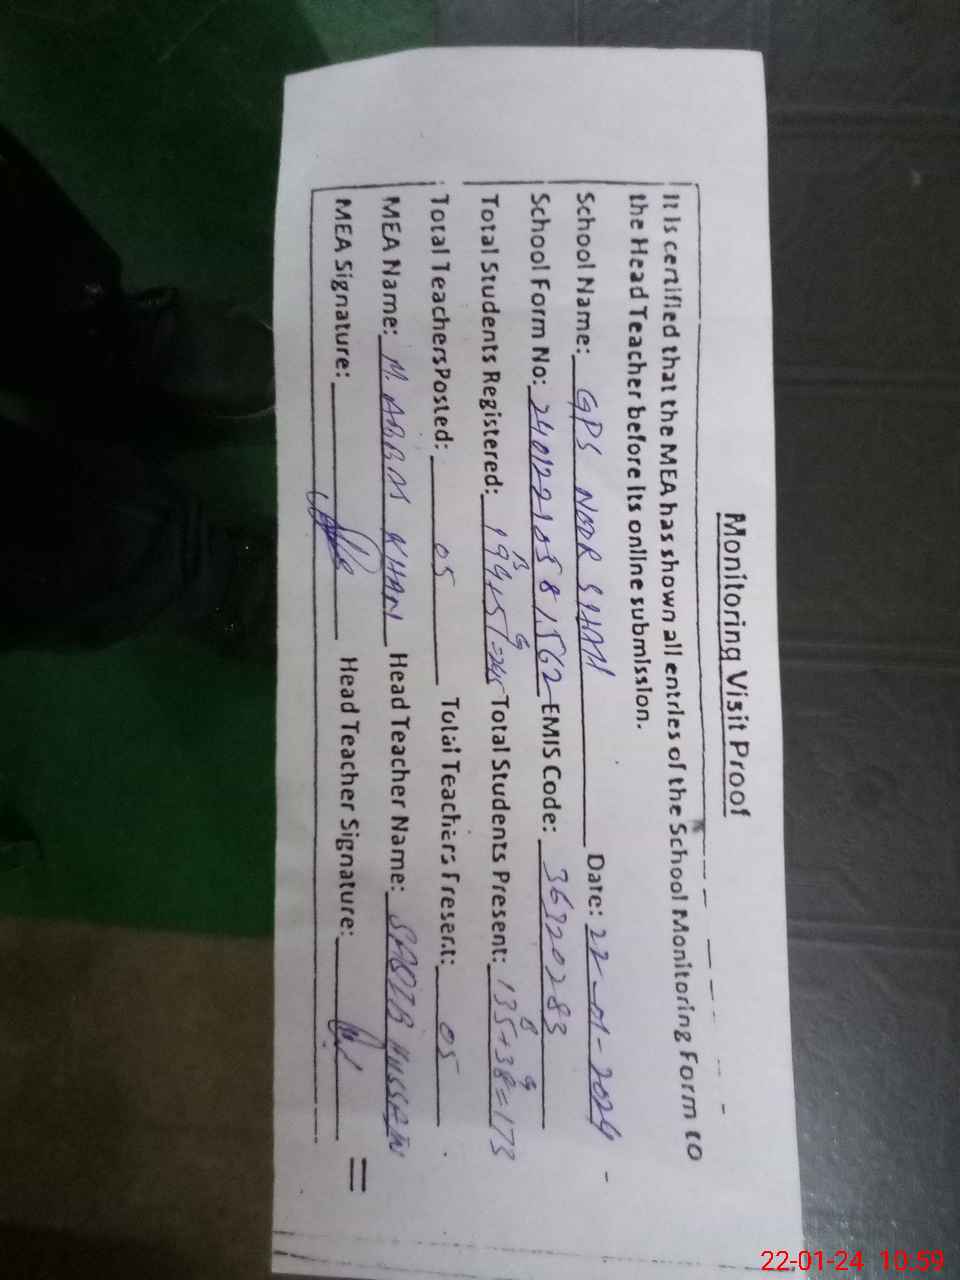 Monitoring Visit Proof
It is certified that the MEA has shown all entries of the School Monitoring Form to
the Head Teacher before its online submission.
School Name: GPS NOOR SHAH Date: 22-01-2024
School Form No: EMIS Code: 36320283
Total Students Registered: B G Total Students Present: 135+38=173 B G
Total Teachers Posted: 05 Total Teachers Present: 05
MEA Name: M. ABBAS KHAN Head Teacher Name: SABIR HUSSAIN
MEA Signature: Head Teacher Signature:
22-01-24 10:59